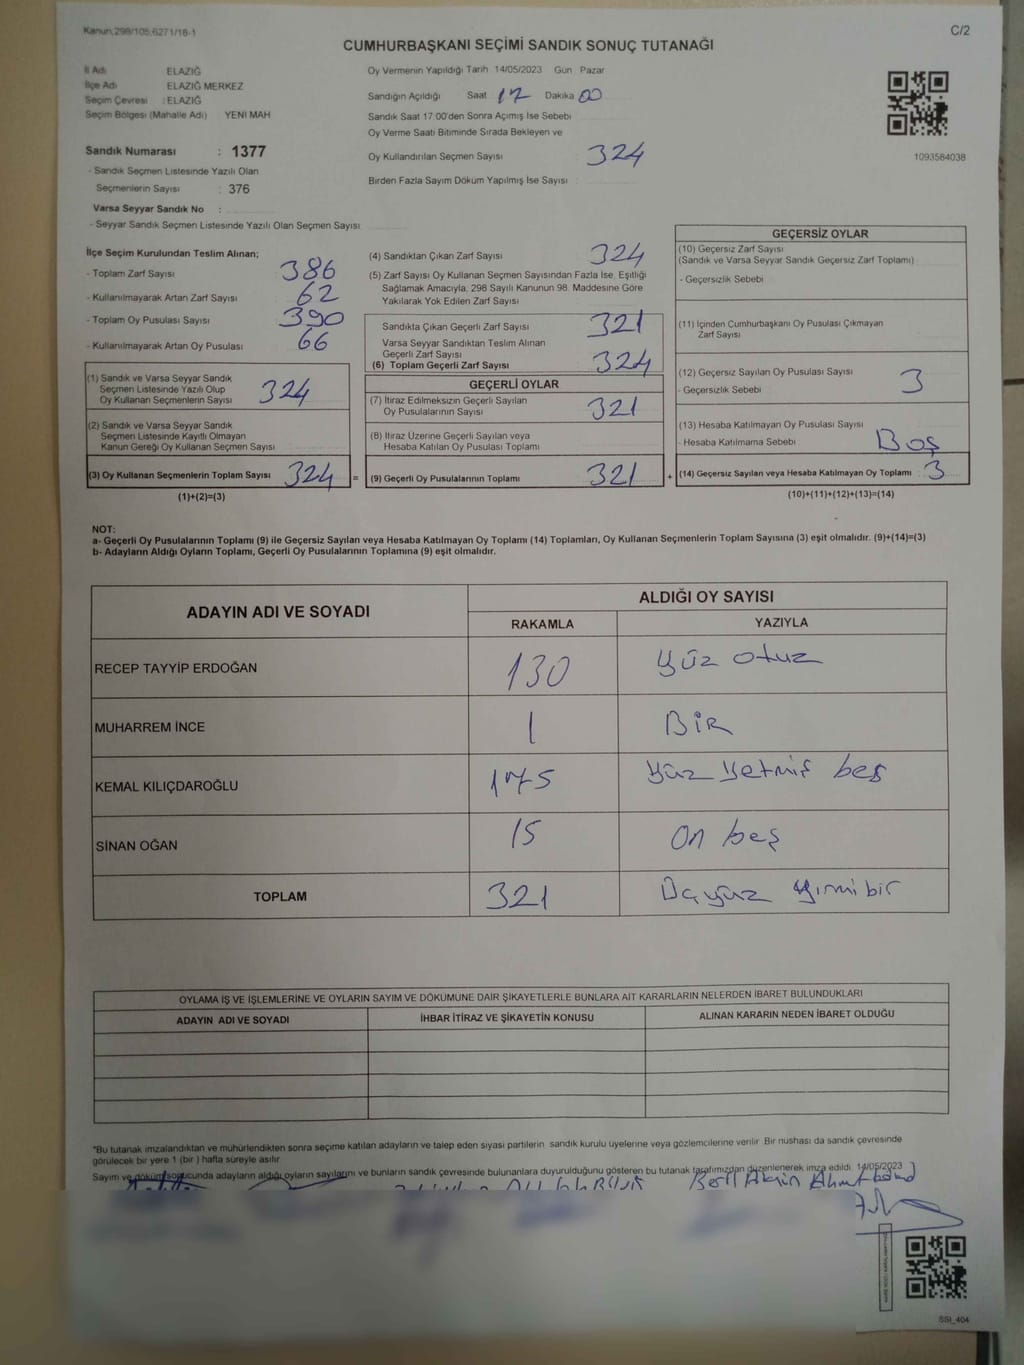 Kanun,298/105,6271/18-1
C/2
CUMHURBAŞKANI SEÇİMİ SANDIK SONUÇ TUTANAĞI
İl Adı ELAZIĞ
İlçe Adı ELAZIĞ MERKEZ
Seçim Çevresi : ELAZIĞ
Seçim Bölgesi (Mahalle Adı) YENİ MAH
Sandık Numarası : 1377
- Sandık Seçmen Listesinde Yazılı Olan
Seçmenlerin Sayısı : 376
Varsa Seyyar Sandık No :
- Seyyar Sandık Seçmen Listesinde Yazılı Olan Seçmen Sayısı
Oy Vermenin Yapıldığı Tarih 14/05/2023 Gün Pazar
Sandığın Açıldığı Saat 17 Dakika 00
Sandık Saat 17:00'den Sonra Açımış İse Sebebi
Oy Verme Saati Bitiminde Sırada Bekleyen ve
Oy Kullandırılan Seçmen Sayısı 324
Birden Fazla Sayım Döküm Yapılmış İse Sayısı :
1093584038
İlçe Seçim Kurulundan Teslim Alınan;
- Toplam Zarf Sayısı 386
- Kullanılmayarak Artan Zarf Sayısı 62
- Toplam Oy Pusulası Sayısı 390
- Kullanılmayarak Artan Oy Pusulası 66
(1) Sandık ve Varsa Seyyar Sandık
Seçmen Listesinde Yazılı Olup
Oy Kullanan Seçmenlerin Sayısı 324
(2) Sandık ve Varsa Seyyar Sandık
Seçmen Listesinde Kayıtlı Olmayan
Kanun Gereği Oy Kullanan Seçmen Sayısı
(3) Oy Kullanan Seçmenlerin Toplam Sayısı 324 =
(1)+(2)=(3)
(4) Sandıktan Çıkan Zarf Sayısı 324
(5) Zarf Sayısı Oy Kullanan Seçmen Sayısından Fazla İse, Eşitliği
Sağlamak Amacıyla, 298 Sayılı Kanunun 98. Maddesine Göre
Yakılarak Yok Edilen Zarf Sayısı
Sandıkta Çıkan Geçerli Zarf Sayısı 321
Varsa Seyyar Sandıktan Teslim Alınan
Geçerli Zarf Sayısı
(6) Toplam Geçerli Zarf Sayısı 324
GEÇERLİ OYLAR
(7) İtiraz Edilmeksizin Geçerli Sayılan
Oy Pusulalarının Sayısı 321
(8) İtiraz Üzerine Geçerli Sayılan veya
Hesaba Katılan Oy Pusulası Toplamı
(9) Geçerli Oy Pusulalarının Toplamı 321 +
GEÇERSİZ OYLAR
(10) Geçersiz Zarf Sayısı
(Sandık ve Varsa Seyyar Sandık Geçersiz Zarf Toplamı)
- Geçersizlik Sebebi
(11) İçinden Cumhurbaşkanı Oy Pusulası Çıkmayan
Zarf Sayısı
(12) Geçersiz Sayılan Oy Pusulası Sayısı 3
- Geçersizlik Sebebi
(13) Hesaba Katılmayan Oy Pusulası Sayısı
- Hesaba Katılmama Sebebi Boş
(14) Geçersiz Sayılan veya Hesaba Katılmayan Oy Toplamı 3
(10)+(11)+(12)+(13)=(14)
NOT:
a- Geçerli Oy Pusulalarının Toplamı (9) ile Geçersiz Sayılan veya Hesaba Katılmayan Oy Toplamı (14) Toplamları, Oy Kullanan Seçmenlerin Toplam Sayısına (3) eşit olmalıdır. (9)+(14)=(3)
b- Adayların Aldığı Oyların Toplamı, Geçerli Oy Pusulalarının Toplamına (9) eşit olmalıdır.
ADAYIN ADI VE SOYADI
ALDIĞI OY SAYISI
RAKAMLA YAZIYLA
RECEP TAYYİP ERDOĞAN 130 Yüz otuz
MUHARREM İNCE 1 Bir
KEMAL KILIÇDAROĞLU 175 Yüz Yetmiş beş
SİNAN OĞAN 15 On beş
TOPLAM 321 Üçyüz yirmi bir
OYLAMA İŞ VE İŞLEMLERİNE VE OYLARIN SAYIM VE DÖKÜMÜNE DAİR ŞİKAYETLERLE BUNLARA AİT KARARLARIN NELERDEN İBARET BULUNDUKLARI
ADAYIN ADI VE SOYADI İHBAR İTİRAZ VE ŞİKAYETİN KONUSU ALINAN KARARIN NEDEN İBARET OLDUĞU
*Bu tutanak imzalandıktan ve mühürlendikten sonra seçime katılan adayların ve talep eden siyasi partilerin sandık kurulu üyelerine veya gözlemcilerine verilir. Bir nüshası da sandık çevresinde
görülecek bir yere 1 (bir) hafta süreyle asılır.
Sayım ve döküm sonucunda adayların aldığı oyların sayılarını ve bunların sandık çevresinde bulunanlara duyurulduğunu gösteren bu tutanak tarafımızdan düzenlenerek imza edildi. 14/05/2023
SSI_404